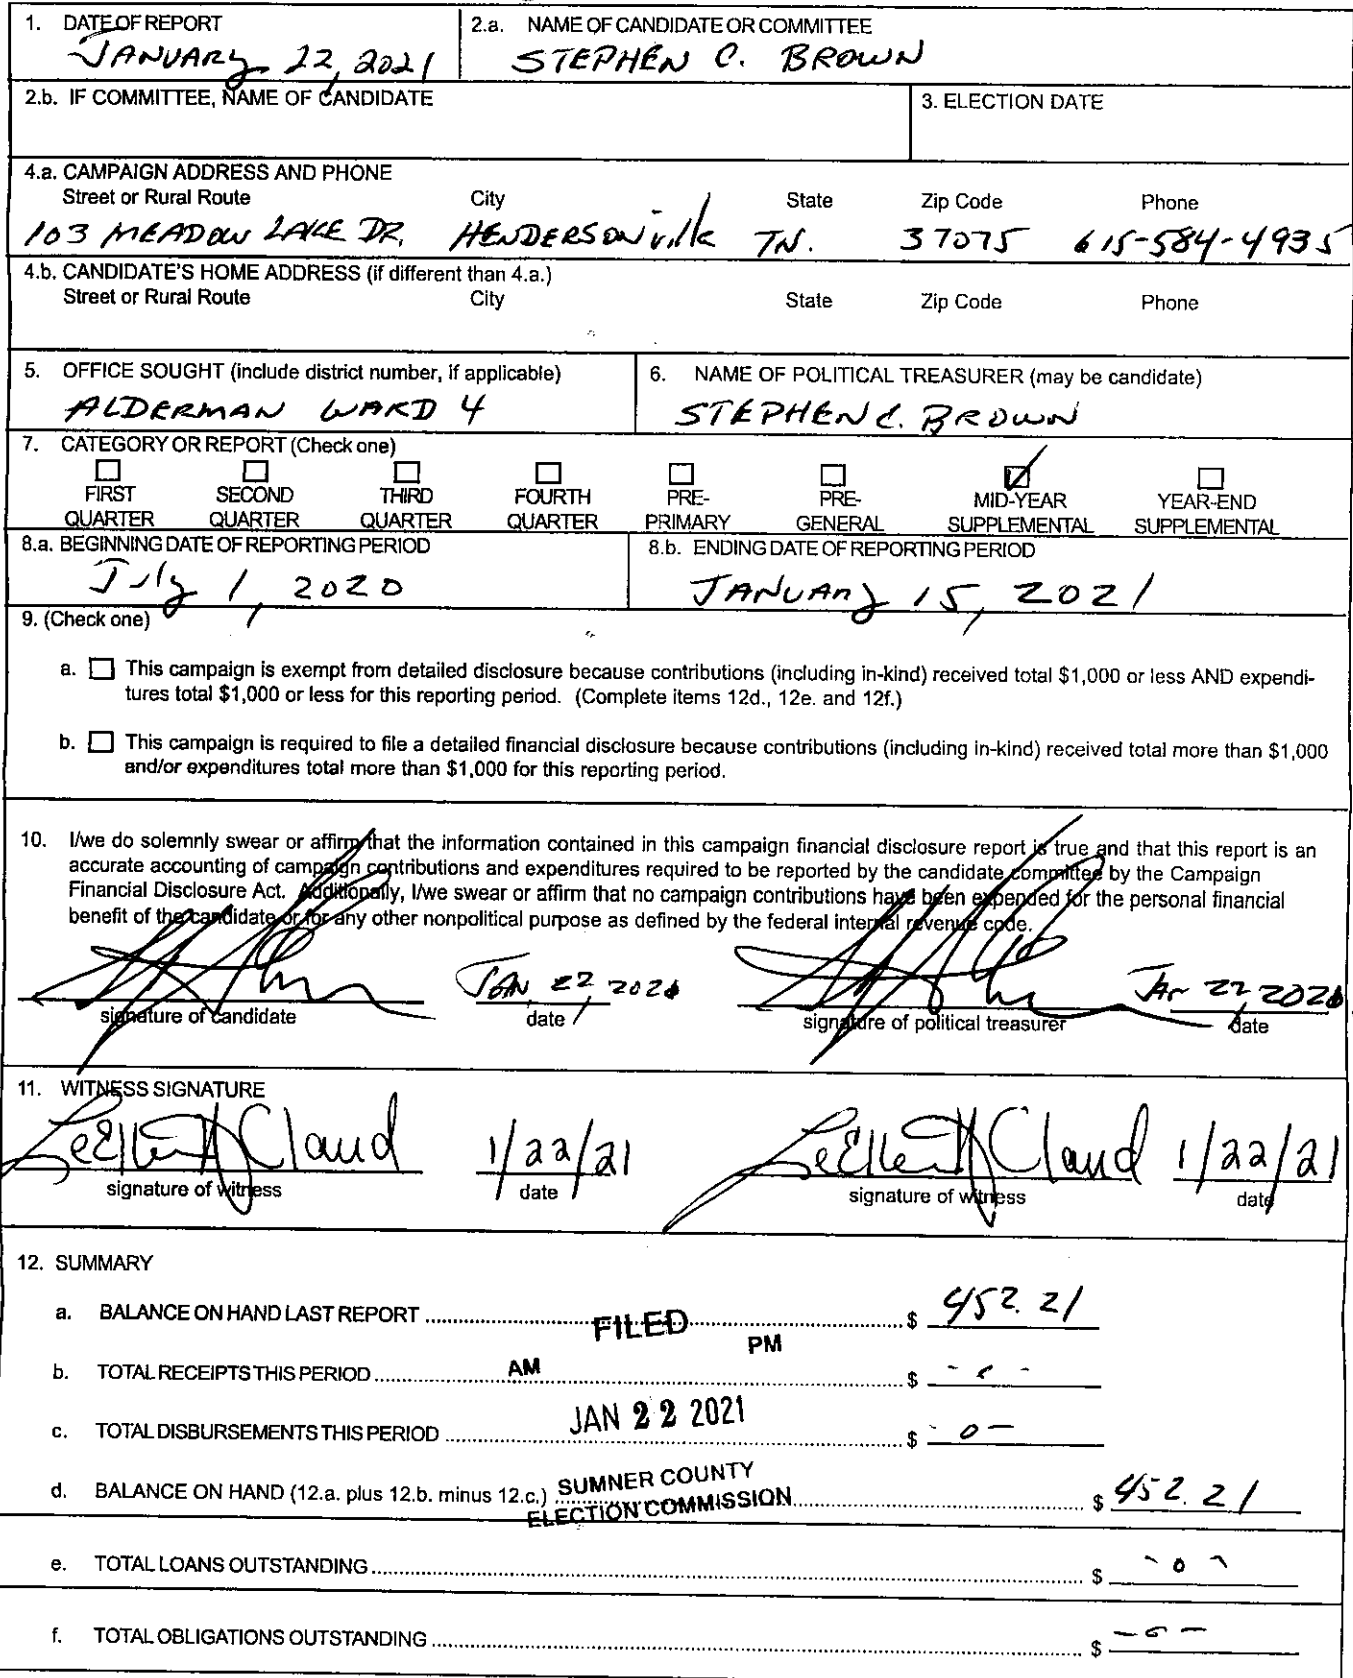 1. DATE OF REPORT
JANUARY 22, 2021
2.a. NAME OF CANDIDATE OR COMMITTEE
STEPHEN C. BROWN
2.b. IF COMMITTEE, NAME OF CANDIDATE
3. ELECTION DATE
4.a. CAMPAIGN ADDRESS AND PHONE
Street or Rural Route City State Zip Code Phone
103 MEADOW LAKE DR. HENDERSONville TN. 37075 615-584-4935
4.b. CANDIDATE'S HOME ADDRESS (if different than 4.a.)
Street or Rural Route City State Zip Code Phone
5. OFFICE SOUGHT (include district number, if applicable)
ALDERMAN WARD 4
6. NAME OF POLITICAL TREASURER (may be candidate)
STEPHEN C. BROWN
7. CATEGORY OR REPORT (Check one)
FIRST QUARTER
SECOND QUARTER
THIRD QUARTER
FOURTH QUARTER
PRE-PRIMARY
PRE-GENERAL
MID-YEAR SUPPLEMENTAL
YEAR-END SUPPLEMENTAL
8.a. BEGINNING DATE OF REPORTING PERIOD
July 1, 2020
8.b. ENDING DATE OF REPORTING PERIOD
JANUARY 15, 2021
9. (Check one)
a. This campaign is exempt from detailed disclosure because contributions (including in-kind) received total $1,000 or less AND expendi-
tures total $1,000 or less for this reporting period. (Complete items 12d., 12e. and 12f.)
b. This campaign is required to file a detailed financial disclosure because contributions (including in-kind) received total more than $1,000
and/or expenditures total more than $1,000 for this reporting period.
10. I/we do solemnly swear or affirm that the information contained in this campaign financial disclosure report is true and that this report is an
accurate accounting of campaign contributions and expenditures required to be reported by the candidate committee by the Campaign
Financial Disclosure Act. Additionally, I/we swear or affirm that no campaign contributions have been expended for the personal financial
benefit of the candidate or for any other nonpolitical purpose as defined by the federal internal revenue code.
JAN 22, 2021 Jan 22, 2021
signature of candidate date signature of political treasurer date
11. WITNESS SIGNATURE
Cloud 1/22/21 Cloud 1/22/21
signature of witness date signature of witness date
12. SUMMARY
a. BALANCE ON HAND LAST REPORT $ 452.21
FILED
AM PM
b. TOTAL RECEIPTS THIS PERIOD $ -0-
JAN 22 2021
c. TOTAL DISBURSEMENTS THIS PERIOD $ -0-
SUMNER COUNTY
ELECTION COMMISSION
d. BALANCE ON HAND (12.a. plus 12.b. minus 12.c.) $ 452.21
e. TOTAL LOANS OUTSTANDING $ -0-
f. TOTAL OBLIGATIONS OUTSTANDING $ -0-